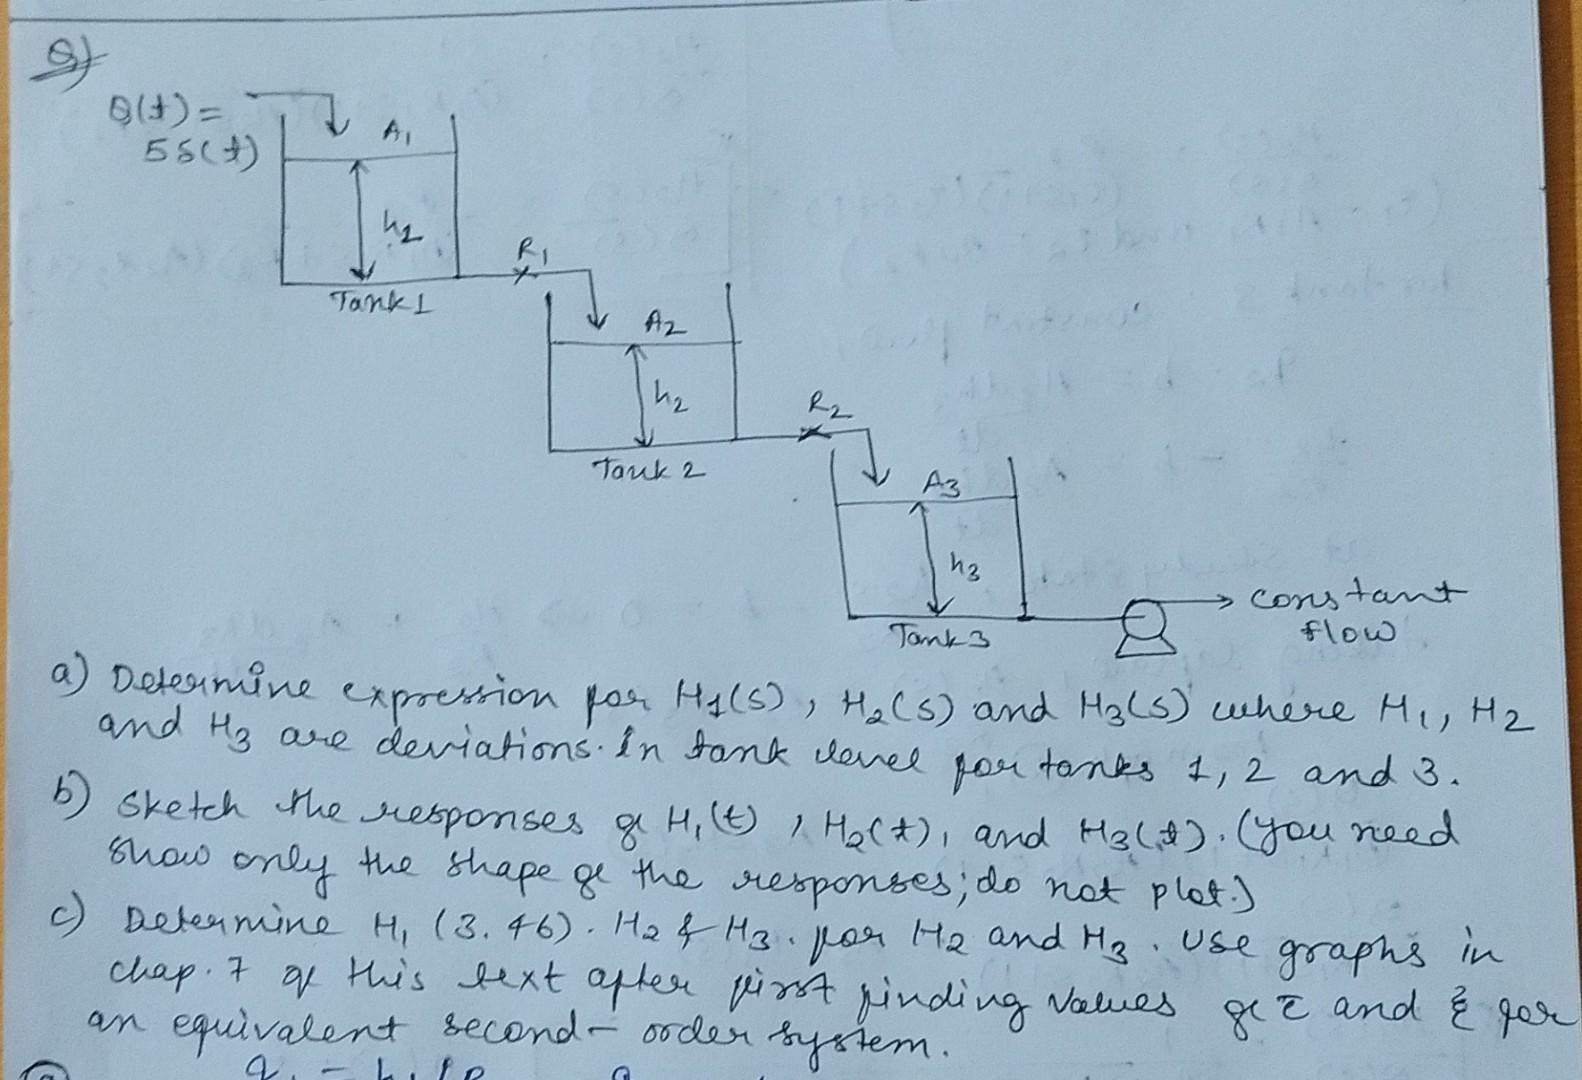 Q)
Q(t) =
5δ(t)
A1
h2
R1
Tank 1
A2
h2
R2
Tank 2
A3
h3
Tank 3
constant
flow
a) Determine expression for H1(s), H2(s) and H3(s) where H1, H2
and H3 are deviations. In tank level for tanks 1, 2 and 3.
b) Sketch the responses of H1(t), H2(t), and H3(t). (you need
show only the shape of the responses; do not plot.)
c) Determine H1 (3.46). H2 & H3. for H2 and H3. Use graphs in
chap. 7 of this text after first finding values of τ and ξ for
an equivalent second-order system.